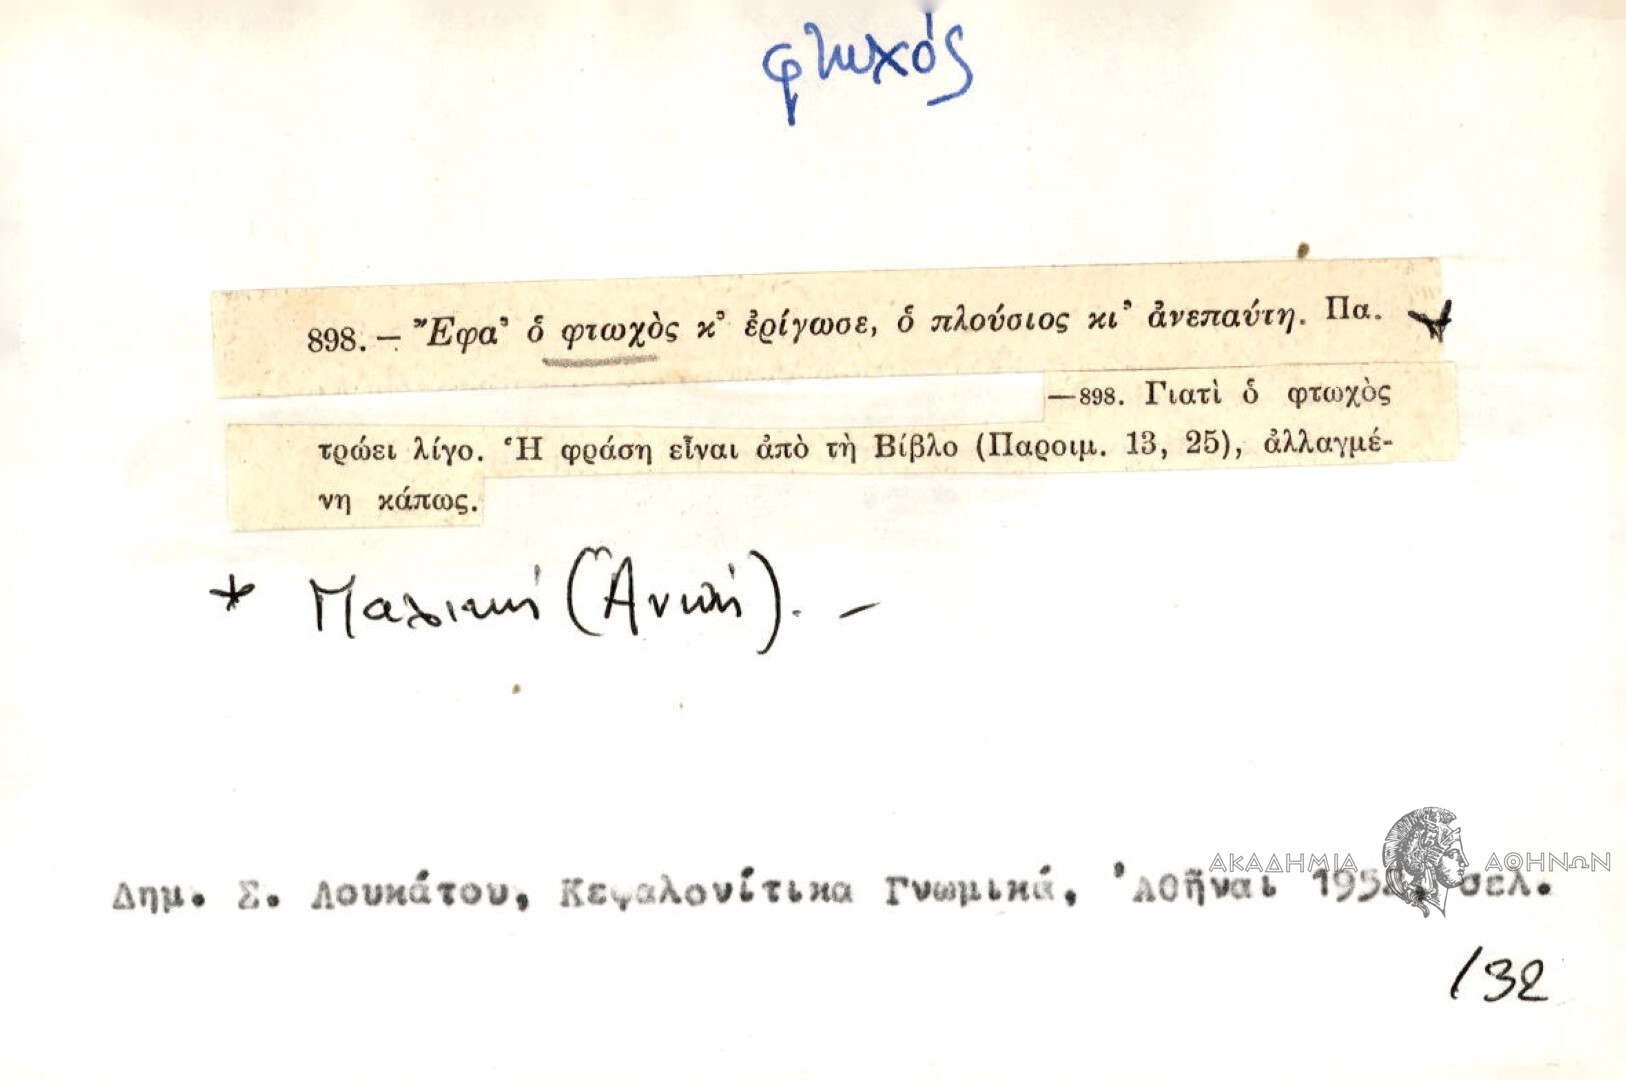 φτωχός
898. — Ἔφα’ ὁ φτωχὸς κ’ ἐρίγωσε, ὁ πλούσιος κι’ ἀνεπαύτη. Πα. *
—898. Γιατὶ ὁ φτωχὸς
τρώει λίγο. Ἡ φράση εἶναι ἀπὸ τὴ Βίβλο (Παροιμ. 13, 25), ἀλλαγμέ-
νη κάπως.
* Παλικὴ (Ἀνωὴ). —
ΑΚΑΔΗΜΙΑ ΑΘΗΝΩΝ
Δημ. Σ. Λουκάτου, Κεφαλονίτικα Γνωμικά, Ἀθῆναι 1952, σελ.
132